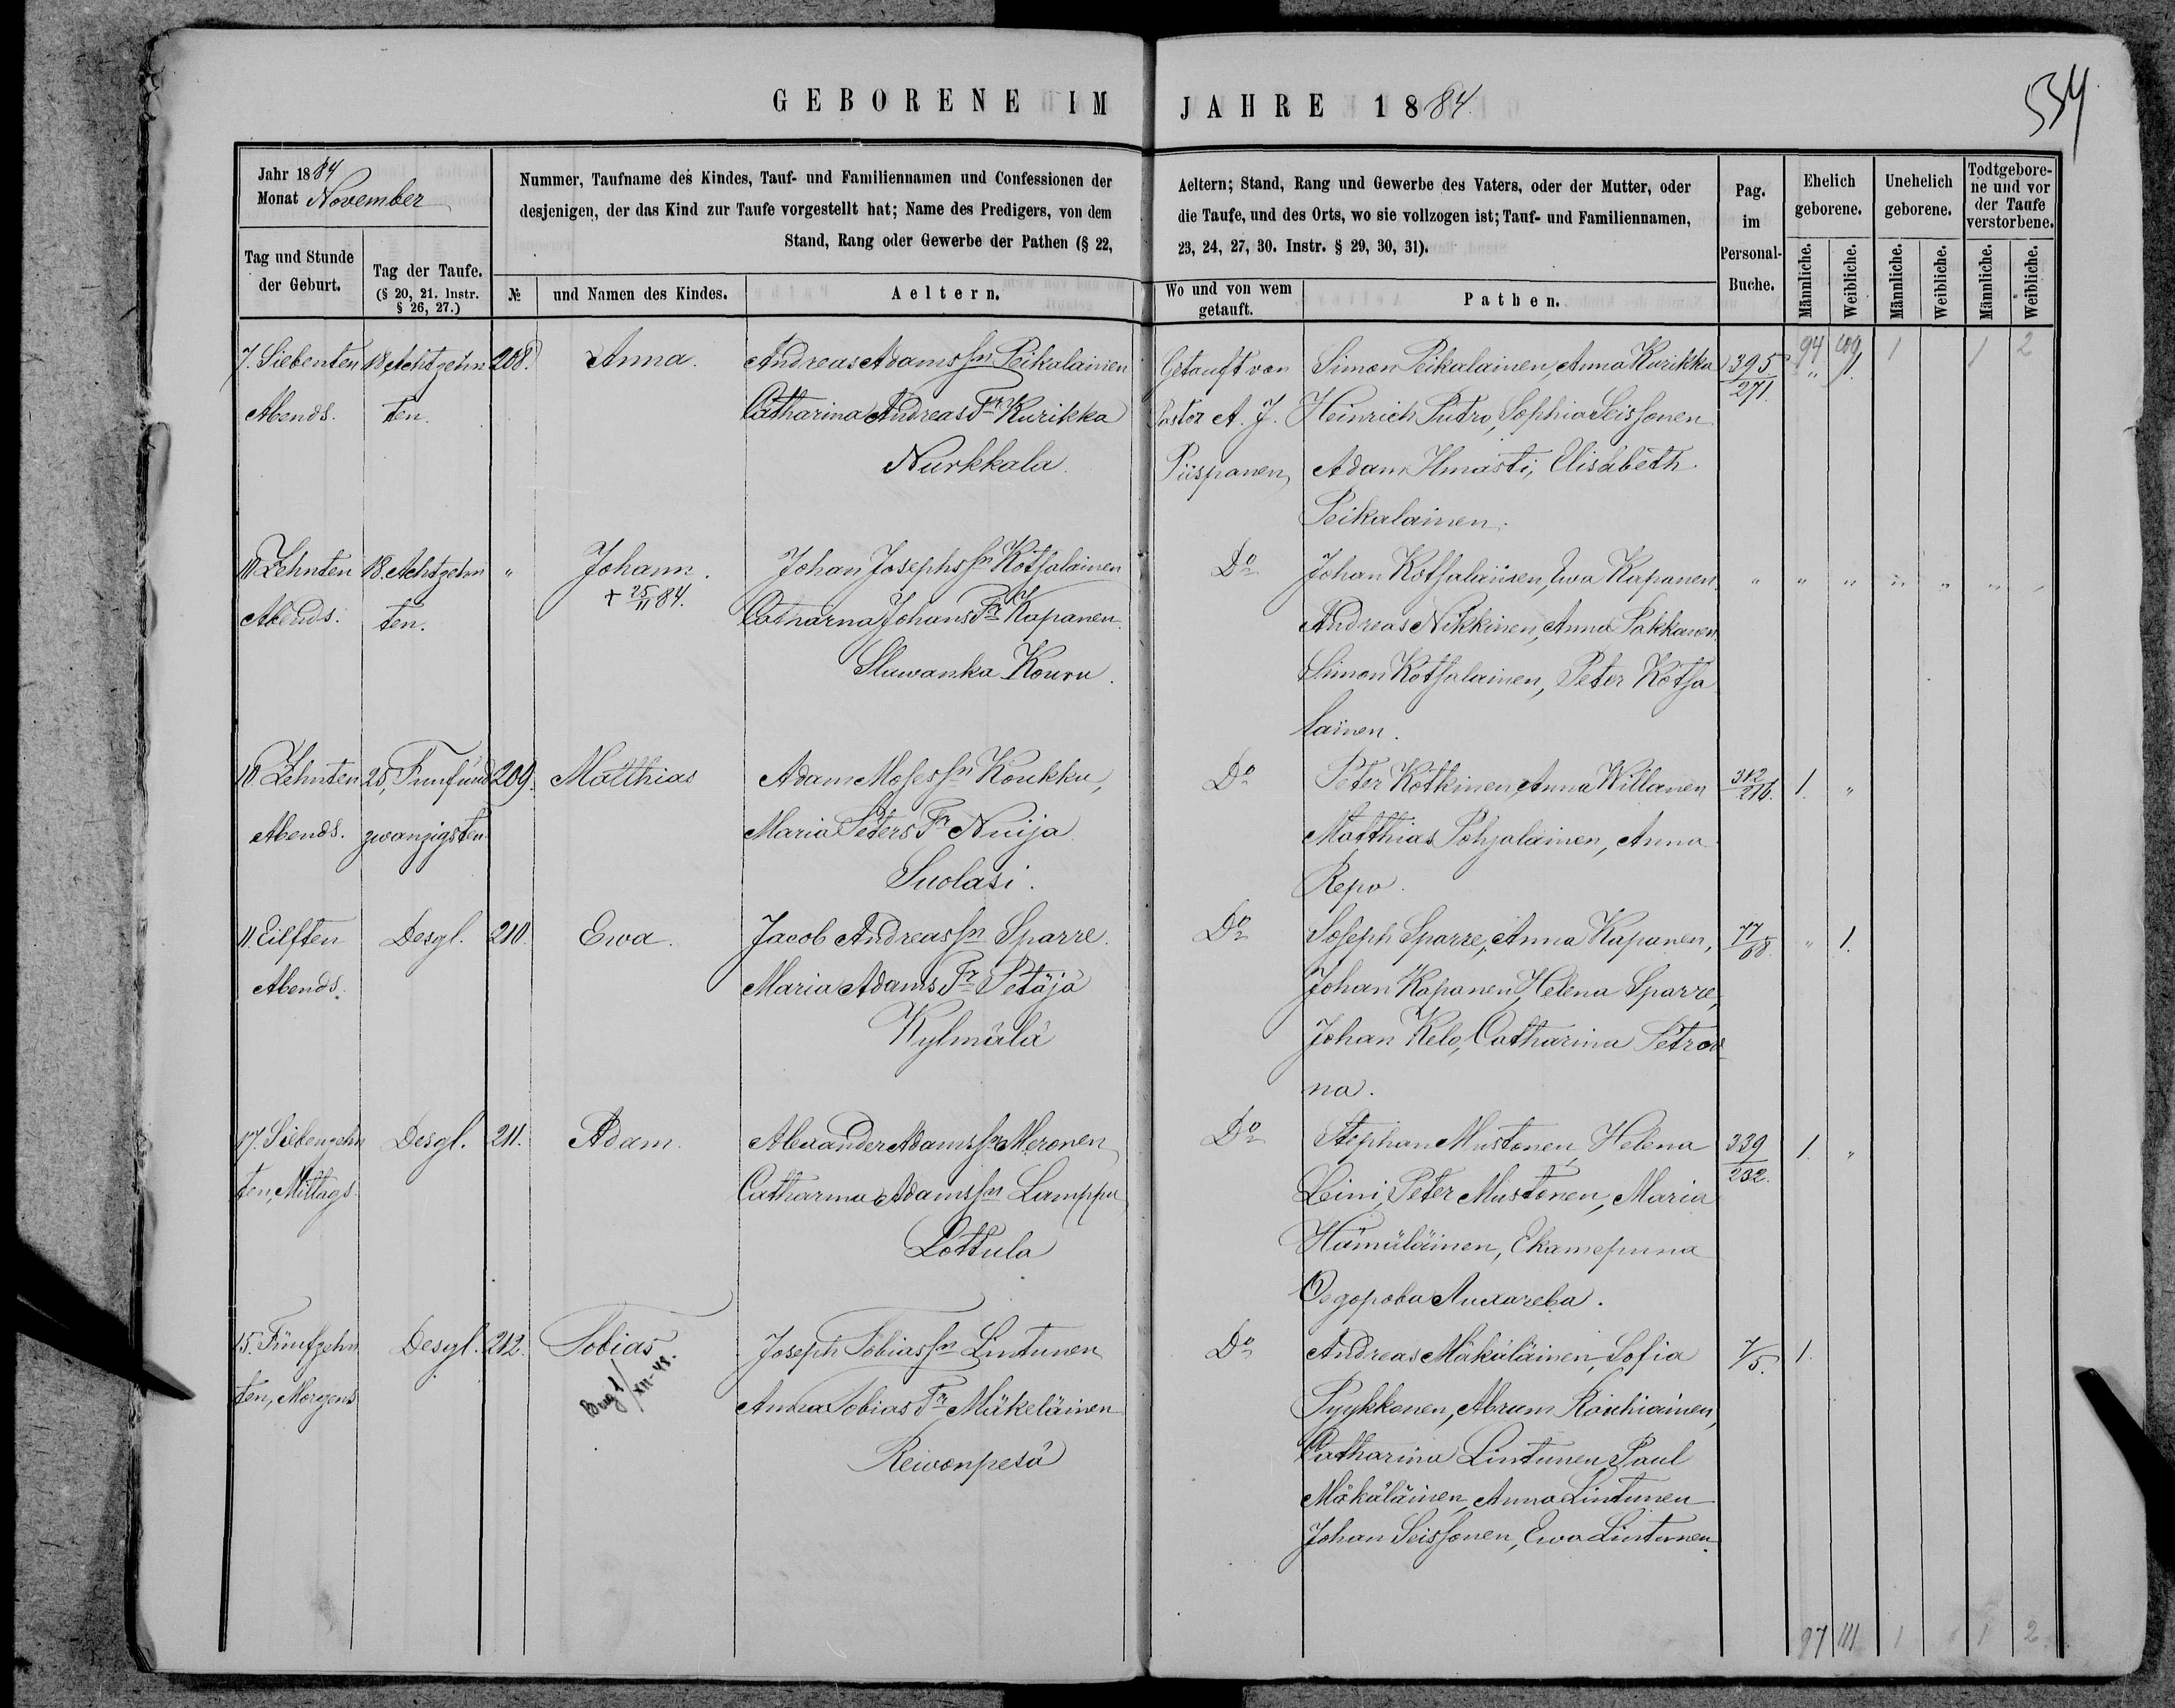 GEBORENE IM JAHRE 1884.
534
Jahr 1884
Monat November
Nummer, Taufname des Kindes, Tauf- und Familiennamen und Confessionen der
desjenigen, der das Kind zur Taufe vorgestellt hat; Name des Predigers, von dem
Stand, Rang oder Gewerbe der Pathen (§ 22,
Aeltern; Stand, Rang und Gewerbe des Vaters, oder der Mutter, oder
die Taufe, und des Orts, wo sie vollzogen ist; Tauf- und Familiennamen,
23, 24, 27, 30. Instr. § 29, 30, 31).
Pag.
im
Personal-
Buche.
Ehelich
geborene.
Unehelich
geborene.
Todtgebore-
ne und vor
der Taufe
verstorbene.
Tag und Stunde
der Geburt.
Tag der Taufe.
(§ 20, 21. Instr.
§ 26, 27.)
№
und Namen des Kindes.
Aeltern.
Wo und von wem
getauft.
Pathen.
Männliche.
Weibliche.
Männliche.
Weibliche.
Männliche.
Weibliche.
94 109 1 1 2
7. Siebenten 18. Achtzehn 208. Anna. Andreas Adams Sn Peikalainen Getauft von Simon Peikalainen, Anna Kurikka 395/271. " 1.
Abends. ten. Catharina Andreas Tr Kurikka Pastor A. J. Heinrich Putro, Sophia Seissonen
Nurkkala. Piispanen, Adam Hmasti, Elisabeth
Peikalainen.
10 Zehnten 18. Achtzehn " Johann. Johan Josephs Sn Kotsalainen Do Johan Kotsalainen, Ewa Kapanen " " " " " "
Abends. ten. + 25/11 84. Catharna Johans Tr Kapanen. Andreas Nikkinen, Anna Pakkanen
Slawanka Kouru. Simon Kotsalainen, Peter Kotsa
lainen.
10. Zehnten 25, Funfund 209. Matthias Adam Moses Sn Koukku, Do Peter Kotkinen, Anna Willanen 312/216. 1. "
Abends. zwanzigsten Maria Peters Tr Nuija Matthias Pohjalainen, Anna
Suolasi. Repo.
11. Eilften Desgl. 210. Ewa. Jacob Andreas Sn Sparre. Do Joseph Sparre, Anna Kapanen, 77/68. " 1.
Abends. Maria Adams Tr Petäjä Johan Kapanen, Helena Sparre,
Kylmälä Johan Kelo, Catharina Petrow
na.
17. Siebenzehn Desgl. 211. Adam. Alexander Adams Sn Meronen Do Stephan Mustonen, Helena 339/232. 1. "
ten, Mittags Catharina Adams Sn Lamppu Leini, Peter Mustonen, Maria
Lottula Hämäläinen, Екатерина
Ѳедорова Лихарева.
15. Fünfzehn Desgl. 212. Tobias. Joseph Tobias Sn Lintunen Do Andreas Mäkäläinen, Sofia 7/5. 1.
ten, Morgens XII-48. Anna Tobias Tr Mäkeläinen Pyykkonen, Abram Roihiainen,
Reiwonpesä Catharina Lintunen Paul
Mäkäläinen, Anna Lintunen
Johan Seissonen, Ewa Lintunen.
97 111 1 1 2.